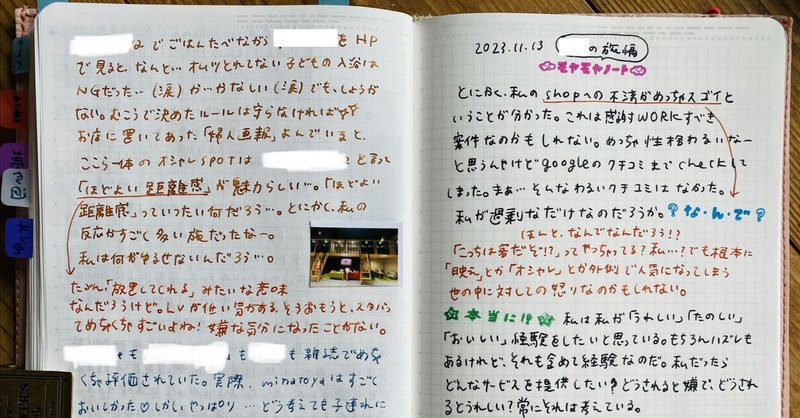 でごはんたべながら、をHP
で見ると、なんと…オムツとれてない子どもの入浴は
NGだった…(涙)か…かなしい(涙)でも、しょうが
ない。むこうで決めたルールは守らなければ
お店に置いてあった「婦人画報」よんでいると、
ここら一体のオシャレSPOTは と言って
「ほどよい距離感」が魅力らしい…。「ほどよい
距離感」っていったい何だろう…。とにかく、私の
反応がすごく多い旅だったなー。
私は何がゆるせないんだろう…。
たぶん、「放置してくれる」みたいな意味
なんだろうけど。Lvが低い気がする。そうおもうと、スタバっ
てめちゃくちゃすごいよね!嫌な気分になったことがない。
も も も雑誌でめちゃ
くちゃ評価されていた。実際、minatoyaはすごく
おいしかった♡しかし、やっぱり…どう考えても子連れに
2023.11.13 の旅編
モヤモヤノート
とにかく、私のshopへの不満がめっちゃスゴイと
いうことが分かった。これは感謝WORKすべき
案件なのかもしれない。めっちゃ性格わるいなー
と思うんやけどgoogleのクチコミまでcheckして
しまった。まぁ…そんなわるいクチコミはなかった。
私が過剰なだけなのだろうか。?な・ん・で?
ほんと、なんでなんだろう!?
「こっちは客だぞ!?」ってやっちゃてる?私…?でも根本に
「映え」とか「オシャレ」とか外側で人気になってしまう
世の中に対しての怒りなのかもしれない。
☆本当に!!☆ 私は私が「うれしい」「たのしい」
「おいしい」経験をしたいと思っている。もちろんハズレも
あるけれど、それも含めて経験なのだ。私だったら
どんなサービスを提供したい?どうされると嫌で、どうされ
るとうれしい?常にそれは考えている。